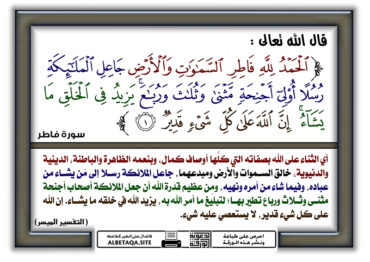 قال الله تعالى :
﴿ ٱلۡحَمۡدُ لِلَّهِ فَاطِرِ ٱلسَّمَٰوَٰتِ وَٱلۡأَرۡضِ جَاعِلِ ٱلۡمَلَٰٓئِكَةِ
رُسُلًا أُو۟لِيٓ أَجۡنِحَةٖ مَّثۡنَىٰ وَثُلَٰثَ وَرُبَٰعَۚ يَزِيدُ فِي ٱلۡخَلۡقِ مَا
يَشَآءُۚ إِنَّ ٱللَّهَ عَلَىٰ كُلِّ شَيۡءٖ قَدِيرٞ ١ ﴾
سورة فاطر
أي الثناء على الله بصفاته التي كلُّها أوصاف كمال، وبنعمه الظاهرة والباطنة، الدينية
والدنيوية، خالق السموات والأرض ومبدعهما، جاعل الملائكة رسلا إلى مَن يشاء من
عباده، وفيما شاء من أمره ونهيه، ومن عظيم قدرة الله أن جعل الملائكة أصحاب أجنحة
مثنى وثلاث ورباع تطير بها؛ لتبليغ ما أمر الله به، يزيد الله في خلقه ما يشاء. إن الله
على كل شيء قدير، لا يستعصي عليه شيء.
(التفسير الميسر)
الدال على الخير كفاعله
ALBETAQA.SITE
احرص على طباعة
ونشر هذه الورقة